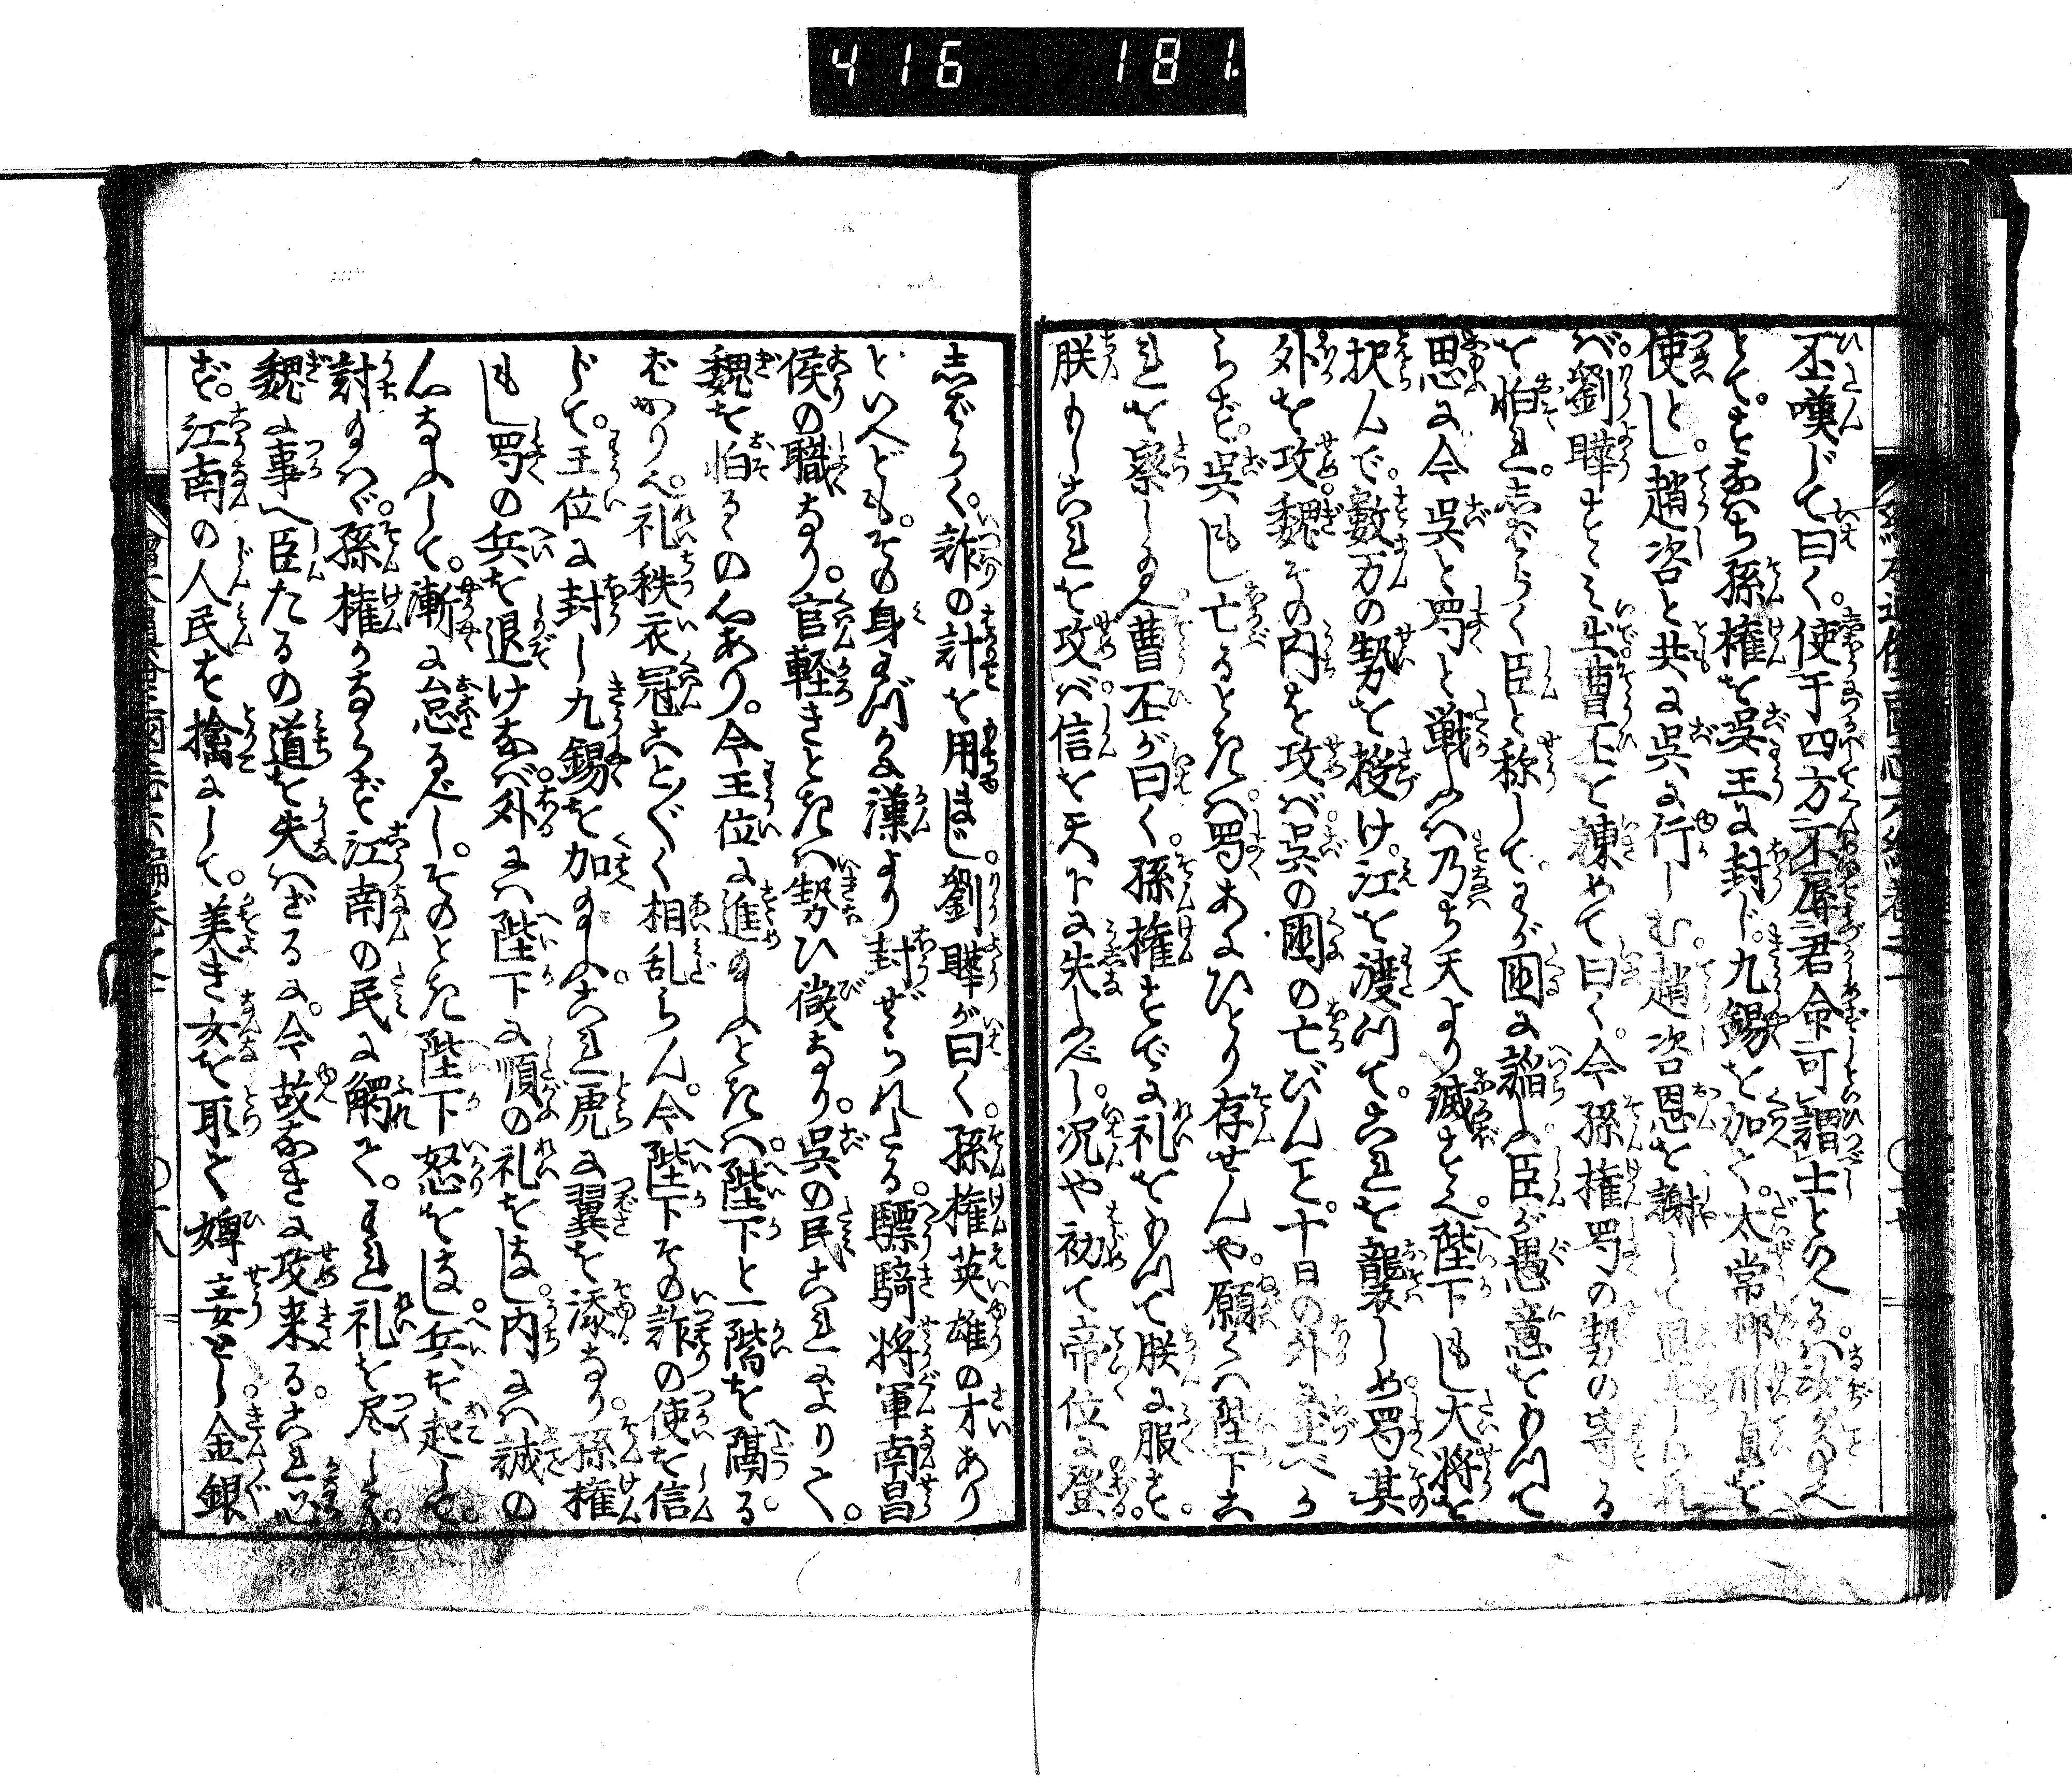 416 181
丕嘆じて曰く。使于四方不辱君命可謂士との人
とて。すなはち孫権を呉王に封ド。九錫を加て。太常邢貞を
使とし。趙咨と共に呉に行しむ。趙咨恩を謝して
ば。劉曄すゝみ出曹丕を諫めて曰く。今孫権蜀の勢の
を怕れ。志ばらく臣と称して。わが国に諂ふ。臣が愚意をもつて
思に今呉と蜀と戦ふハ乃ち天より滅すなり。陛下もし大将を
択んで。数万の勢を授け。江を渡つて。これを襲しめ蜀其
外を攻。魏その内を攻ば。呉の国の亡びんこと。十日の外に出べか
らず。呉もし亡るときハ。蜀あにひとり存せんや。願くハ陛下こ
れを察し給へ。曹丕が曰く。孫権すでに礼をもつて朕に服す。
朕もしこれを攻ば。信を天下に失ふべし。况や初て帝位に登。
志ばらく。詐の計を用まじ。劉曄が曰く。孫権英雄の才あり
といへども。その身わづか漢より封ぜられたる。驃騎将軍南昌
侯の職なり。官軽きときハ勢ひ微なり。呉の民これによりて。
魏を怕るゝの心あり。今王位に進め給ふときハ。陛下と一階を隔る
ばかりにて。礼秩衣冠ことごとく相乱らん。今陛下その詐の使を信
ドて。王位に封し九錫を加給ふハ。これ虎に翼を添なり。孫権
もし蜀の兵を退けなば。外にハ陛下に順の礼をなし。内にハ誠の
心なふして。漸に怠るべし。そのとき陛下怒をなし。兵を起して。
討給ハヾ。孫権かならず江南の民に觸て。われ礼を尽して。
魏に事へ臣たるの道を失ハざるに。今故なきに攻来る。これ必
ず。江南の人民を擒にして。美き女を取て婢妾とし。金銀